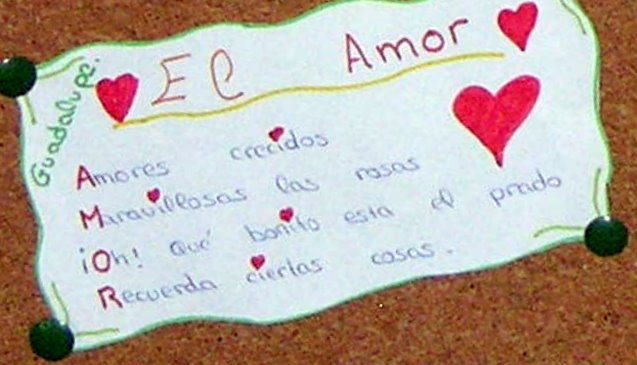 Guadalupe.
El Amor
Amores crecidos
Maravillosas las rosas
¡Oh! Qué bonito esta el prado
Recuerda ciertas cosas.